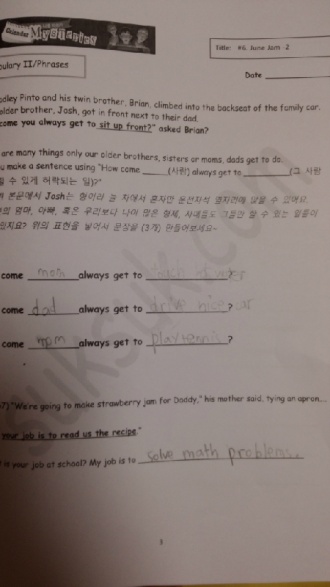 Calendar Mysteries
Title: #6. June Jam -2
bulary II/Phrases
Date
dley Pinto and his twin brother, Brian, climbed into the backseat of the family car.
older brother, Josh, got in front next to their dad.
come you always get to sit up front?" asked Brian?
are many things only our older brothers, sisters or moms, dads get to do.
u make a sentence using "How come ____ (사람) always get to ____ (그 사람
할 수 있게 허락되는 일)?"
본문에서 Josh는 형이라
엄마, 아빠, 혹은 우리보다 나이 많은 형제,
위의 표현을 넣어서 문장을 (3개) 만들어보세요~
come mom always get to
come dad always get to drive nice car?
come mom always get to play tennis?
7) "We're going to make strawberry jam for Daddy," his mother said, tying an apron...
your job is to read us the recipe."
is your job at school? My job is to solve math problems.
3